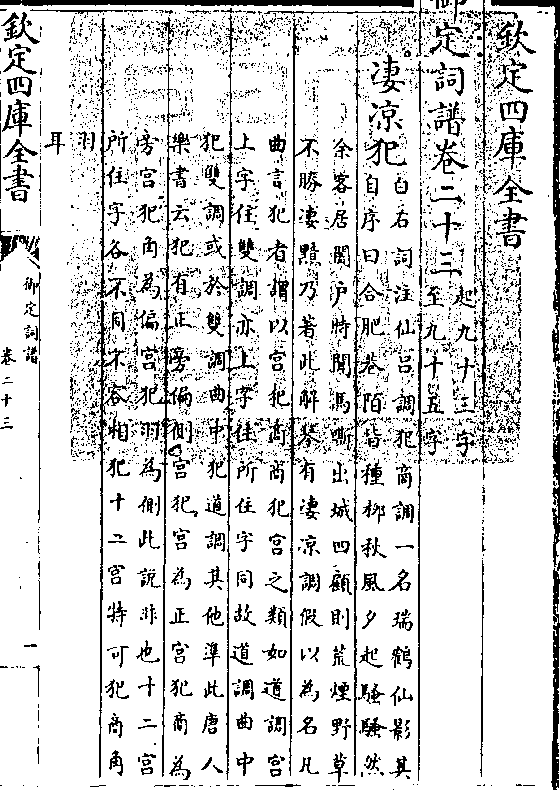 欽定四庫全書
御定詞譜卷二十三 起九十三字至九十五字
凄凉犯
白石詞注仙呂調犯商調一名瑞鶴仙影其
自序曰合肥巷陌皆種柳秋風夕起騷騷然
余客居闔戶時聞馬嘶出城四顧則荒煙野草
不勝凄黯乃著此解琴有凄凉調假以為名凡
曲言犯者謂以宫犯商商犯宫之類如道調宫
上字住雙調亦上字住所住字同故道調曲中
犯雙調或於雙調曲中犯道調其他準此唐人
樂書云犯有正旁偏側宫犯宫為正宫犯商為
旁宫犯角為偏宫犯羽為側此說非也十二宫
所住字各不同不容相犯十二宫特可犯商角
羽耳
欽定四庫全書
御定詞譜
卷二十三
一